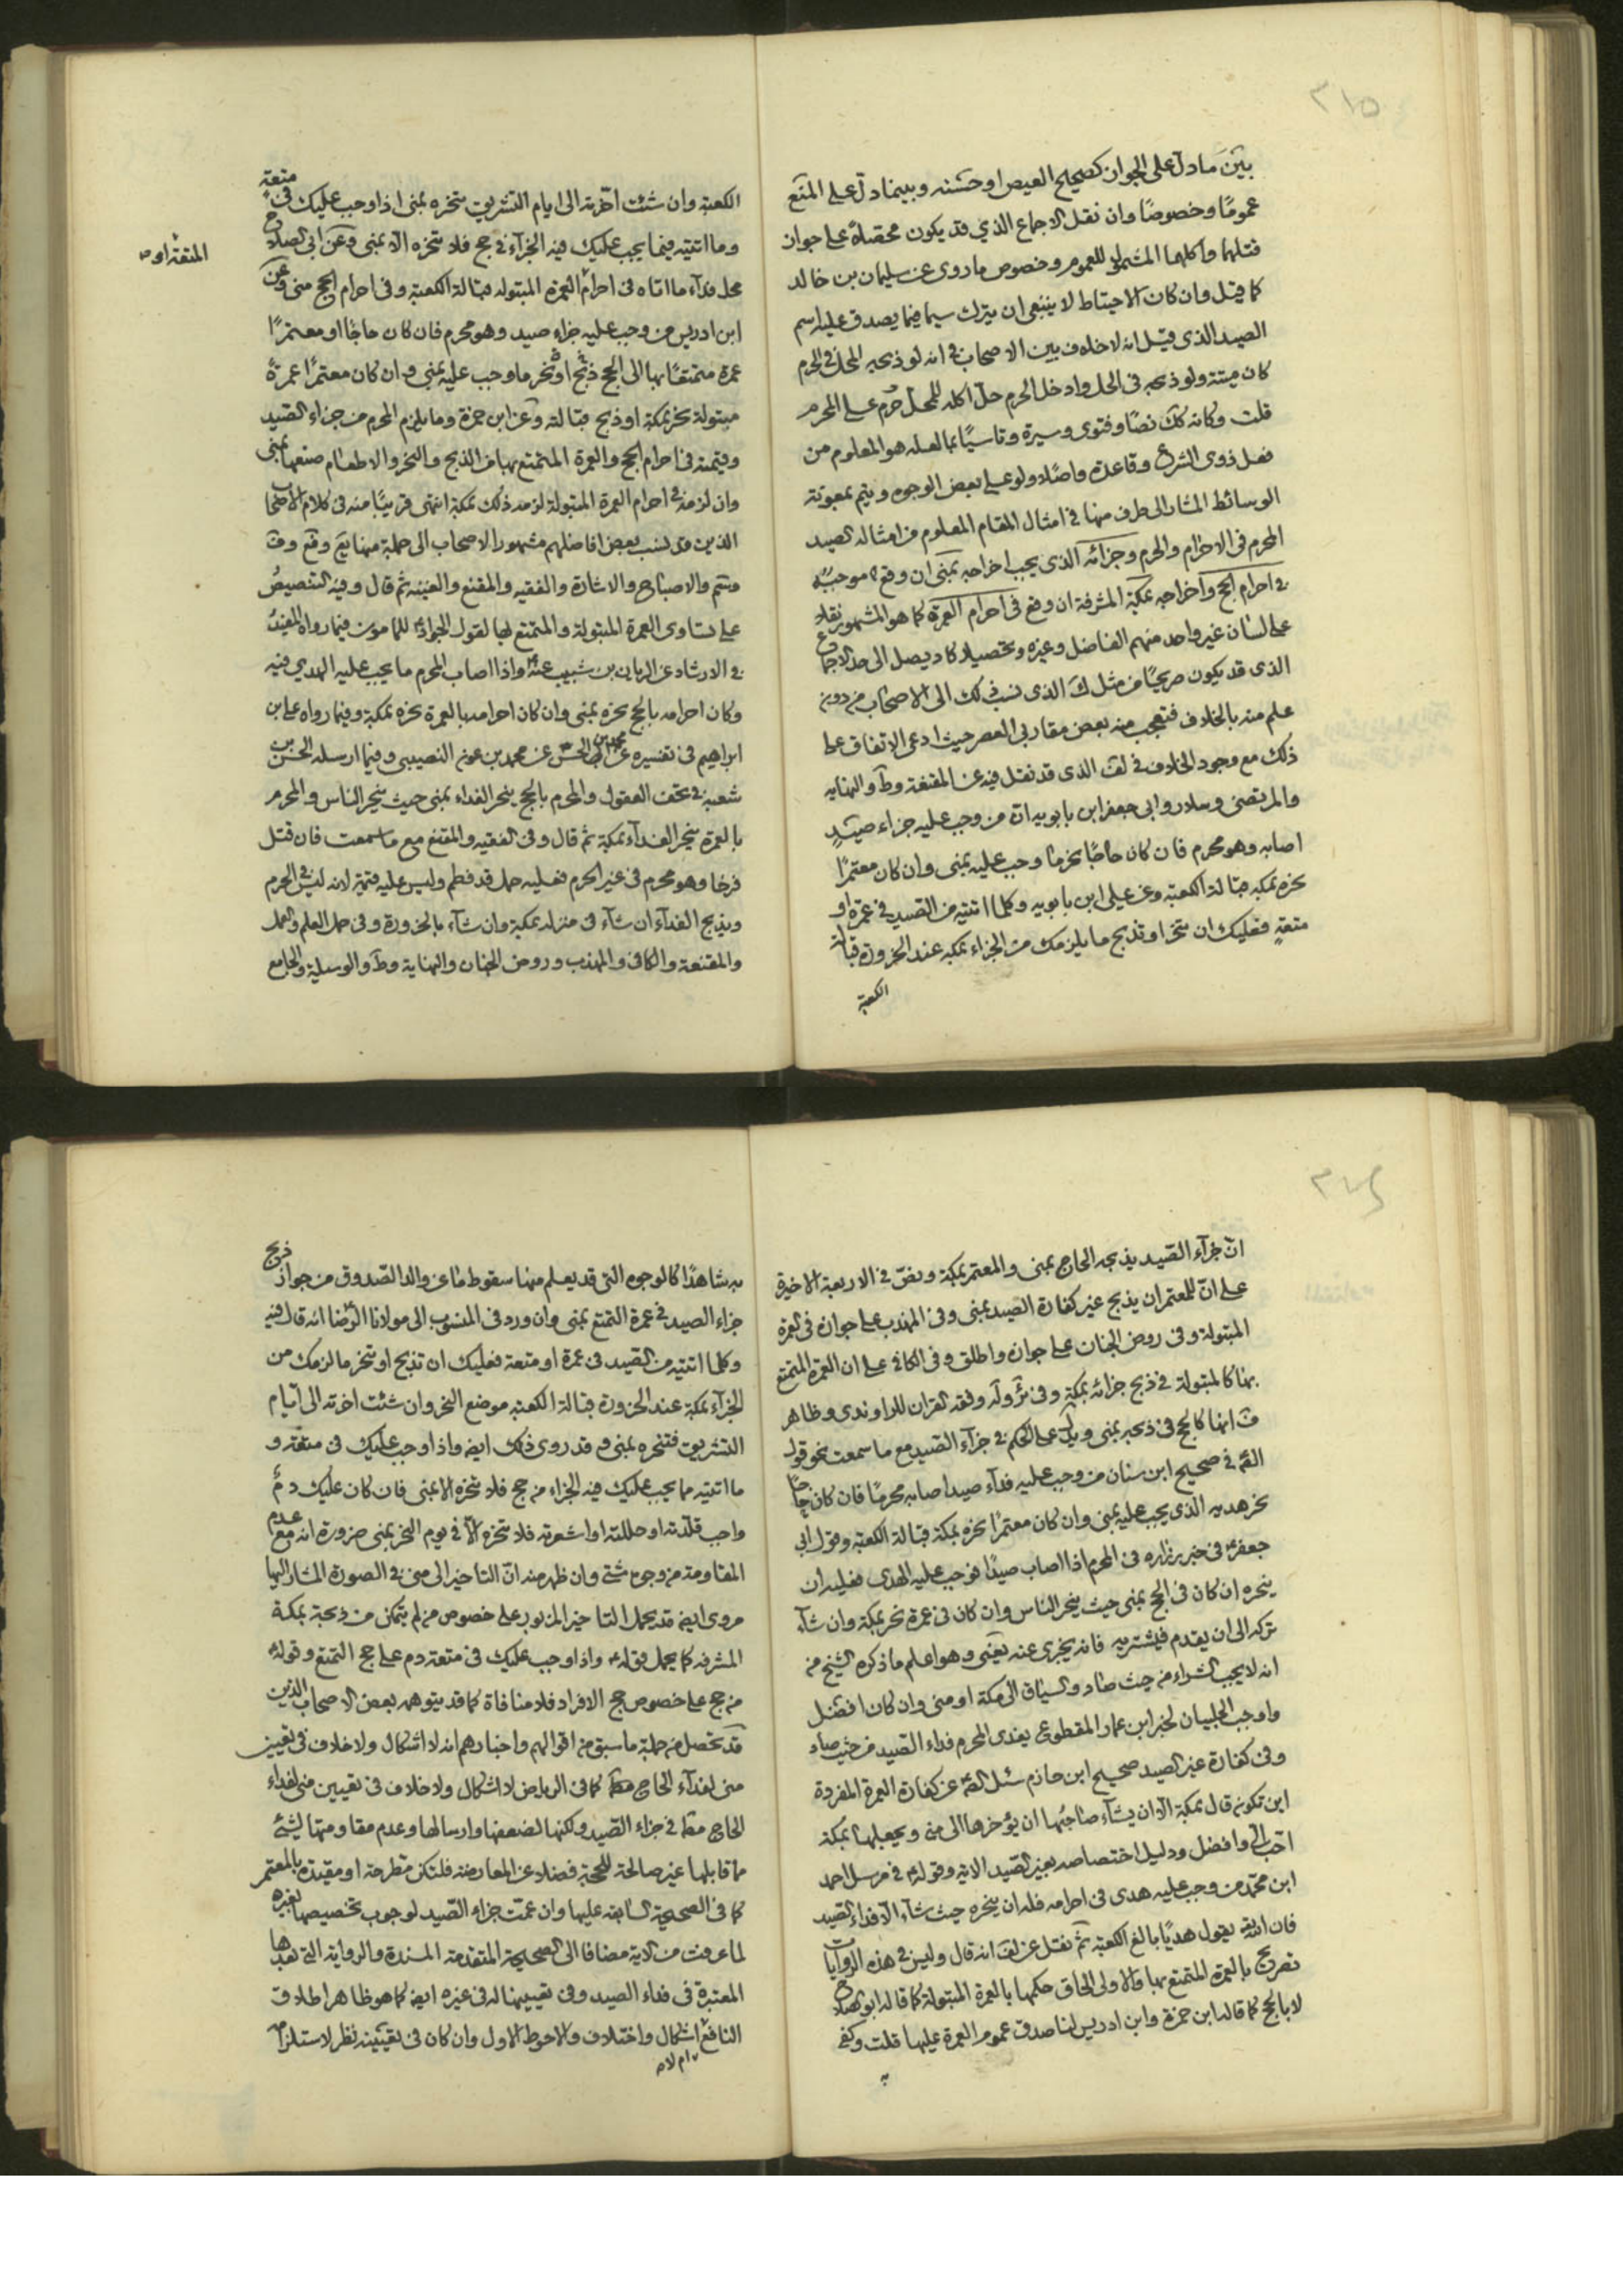 ٣١٥
بين ما دل على الجواز كصحيح العيص او حسنه وبينما دل على المنع
عموما وخصوصا وان نقل الاجماع الذي قد يكون محصلا على جواز
قتلها واكلها المشمول للعموم وخصوص ما روى عن سليمان بن خالد
كما قيل وان كان الاحتياط لا ينبغى ان يترك سيما فيما يصدق عليه اسم
الصيد الذى قيل انه لا خلاف بين الاصحاب فى انه لو ذبحه المحل فى الحرم
كان ميتة ولو ذبحه فى الحل وادخل الحرم حل اكله للمحل حرم على المحرم
قلت وكانه كك نصا وفتوى وسيرة وتاسيا بما لعله هو المعلوم من
فعل ذوى الشرع وقاعدة واصلا ولو على بعض الوجوه ويتم بمعونة
الوسائط المشار الى طرف منها فى امثال المقام المعلوم من امثاله الصيد
المحرم فى الاحرام والحرم وجزائه الذى يجب اخراجه بمنى ان وقع موجبه
فى احرام الحج واخراجه بمكة المشرفة ان وقع فى احرام العمرة كما هو المشهور نقلا
على لسان غير واحد منهم الفاضل وغيره وتحصيلا كاد يصل الى حد الاجماع
الذى قد يكون صريحا من مثل ك الذى نسب ذلك الى الاصحاب من دون
علم منه بالخلاف فتعجب منه بعض مقاربى العصر حيث ادعى الاتفاق على
ذلك مع وجود الخلاف فى لف الذى قد نقل فيه عن المقنعة وط والنهاية
والمرتضى وسلار وابى جعفر ابن بابويه ان من وجب عليه جزاء صيد
اصابه وهو محرم فان كان حاجا نحر ما وجب عليه بمنى وان كان معتمرا
نحره بمكة قبالة الكعبة وعن على ابن بابويه وكلما اتيته من الصيد فى عمرة او
متعة فعليك ان تنحر او تذبح ما يلزمك من الجزاء بمكة عند الحزورة قبالة
الكعبة
الكعبة وان شئت اخرته الى ايام التشريق تنحره بمنى اذا وجب عليك فى متعة
وما اتيته فيما يجب عليك فيه الجزاء فى حج فلا تنحره الا بمنى وعن ابى الصلاح
المتعة او
محل فداء ما اتاه فى احرام العمرة المبتولة قبالة الكعبة وفى احرام الحج منى وعن
ابن ادريس من وجب عليه جزاء صيد وهو محرم فان كان حاجا او معتمرا
عمرة متمتعا بها الى الحج ذبح او نحر ما وجب عليه بمنى وان كان معتمرا عمرة
مبتولة نحر بمكة او ذبح قبالته وعن ابن حمزة وما يلزم المحرم من جزاء الصيد
وقيمته فى احرام الحج والعمرة المتمتع بها من الذبح والنحر والاطعام صنعها بمنى
وان لزمه فى احرام العمرة المبتولة لزمه ذلك بمكة انتهى قريبا منه فى كلام الاصحاب
الذين قد نسب بعض افاضلهم مشهور الاصحاب الى جملة منها يع وقع وف
وسم والاصباح والاشارة والفقيه والمقنع والغنية ثم قال وفيه التنصيص
على تساوى العمرة المبتولة والمتمتع بها لقول الجواد للمامون فيما رواه المفيد
فى الارشاد عن الريان بن شبيب عنه واذا اصاب المحرم ما يجب عليه الهدي فيه
وكان احرامه بالحج نحره بمنى وان كان احرامه بالعمرة نحره بمكة وفيما رواه على بن
ابراهيم فى تفسيره عن محمد بن الحسن عن محمد بن عون النصيبى وفيما ارسله الحسن بن
شعبة فى تحف العقول والمحرم بالحج ينحر الفداء بمنى حيث ينحر الناس والمحرم
بالعمرة ينحر الفداء بمكة ثم قال وفى الفقيه والمقنع مع ما سمعت فان قتل
فرخا وهو محرم فى غير الحرم فعليه حمل قد فطم وليس عليه قيمة لانه ليس فى الحرم
ويذبح الفداء ان شاء فى منزله بمكة وان شاء بالحزورة وفى جمل العلم والعمل
والمقنعة والكافى والمهذب وروض الجنان والنهاية وط والوسيلة والجامع
ان جزاء الصيد يذبحه الحاج بمنى والمعتمر بمكة ونص فى الاربعة الاخيرة
على ان للمعتمر ان يذبح غير كفارة الصيد بمنى وفى المهذب على جوازه فى العمرة
المبتولة وفى روض الجنان على جوازه واطلق وفى الكافى على ان العمرة المتمتع
بها كالمبتولة فى ذبح جزائه بمكة وفى ئر وله وفقه القران للراوندى وظاهر
ف انها كالحج فى ذبحه بمنى ويدل على الحكم فى جزاء الصيد مع ما سمعت نحو قول
الصم فى صحيح ابن سنان من وجب عليه فداء صيد اصابه محرما فان كان حاجا
نحر هديه الذى يجب عليه بمنى وان كان معتمرا نحره بمكة قبالة الكعبة وقول ابى
جعفر فى خبر زراره فى المحرم اذا اصاب صيدا فوجب عليه الهدى فعليه ان
ينحره ان كان فى الحج بمنى حيث ينحر الناس وان كان فى عمرة نحر بمكة وان شاء
تركه الى ان يقدم فيشتريه فانه يجزى عنه يعنى وهو اعلم ما ذكره الشيخ من
انه لا يجب الشراء من حيث صاد والسياق الى مكة او منى وان كان افضل
واوجب الحلبيان لخبر ابن عمار المقطوع يفدى المحرم فداء الصيد من حيث صاد
وفى كفارة غير الصيد صحيح ابن حازم سئل الصم عن كفارة العمرة المفردة
اين تكون قال بمكة الا ان يشاء صاحبها ان يؤخرها الى منى ويجعلها بمكة
احب الى وافضل ودليل اختصاصه بغير الصيد الاية وقوله فى مرسل احمد
ابن محمد من وجب عليه هدى فى احرامه فله ان ينحره حيث شاء الا فداء الصيد
فان الله يقول هديا بالغ الكعبة ثم نقل عن لف انه قال وليس فى هذه الروايات
تصريح بالعمرة المتمتع بها والاولى الحاق حكمها بالعمرة المبتولة كما قاله ابو الصلاح
لا بالحج كما قاله ابن حمزة وابن ادريس لنا صدق عموم العمرة عليها قلت وكفى
به
به شاهدا كالوجوه التى قد يعلم منها سقوط ما عن والد الصدوق من جواز ذبح
جزاء الصيد فى عمرة التمتع بمنى وان ورد فى المنسوب الى مولانا الرضا انه قال فيه
وكلما اتيته من الصيد فى عمرة او متعة فعليك ان تذبح او تنحر ما لزمك من
الجزاء بمكة عند الحزورة قبالة الكعبة موضع النحر وان شئت اخرته الى ايام
التشريق فتنحره بمنى وقد روى ذلك ايض واذا وجب عليك فى متعة و
ما اتيته مما يجب عليك فيه الجزاء من حج فلا تنحره الا بمنى فان كان عليك دم
واجب قلدته او جللته او اشعرته فلا تنحره الا فى يوم النحر بمنى ضرورة انه مع عدم
المقاومة من وجوه شتى وان ظهر منه ان التاخير الى منى فى الصورة المشار اليها
مروى ايض قد يحمل التاخير المزبور على خصوص من لم يتمكن من ذبحه بمكة
المشرفه كما يحمل قوله واذا وجب عليك فى متعة دم على حج التمتع وقوله
من حج على خصوص حج الافراد فلا منافاة كما قد يتوهمه بعض الاصحاب الذين
قد تحصل من جملة ما سبق من اقوالهم واخبارهم انه لا اشكال ولا خلاف فى تعيين
منى لفداء الحاج كما فى الرياض لا اشكال ولا خلاف فى تعيين منى لفداء
الحاج مط فى جزاء الصيد ولكنها لضعفها وارسالها وعدم مقاومتها لشئ
ما قابلها غير صالحة للحجية فضلا عن المعارضة فلتكن مطرحة او مقيدة بالمعتمر
كما فى الصحيحة السابقة عليها وان عمت جزاء الصيد لوجوب تخصيصها بغيره
لما عرفت من الاية مضافا الى الصحيحة المتقدمة المسندة والرواية التى بعدها
المعتبرة فى فداء الصيد وفى تعيينها له فى غيره ايض كما هو ظاهر اطلاق
النافع اشكال واختلاف والاحوط الاول وان كان فى تعيينه نظر لاستلزام